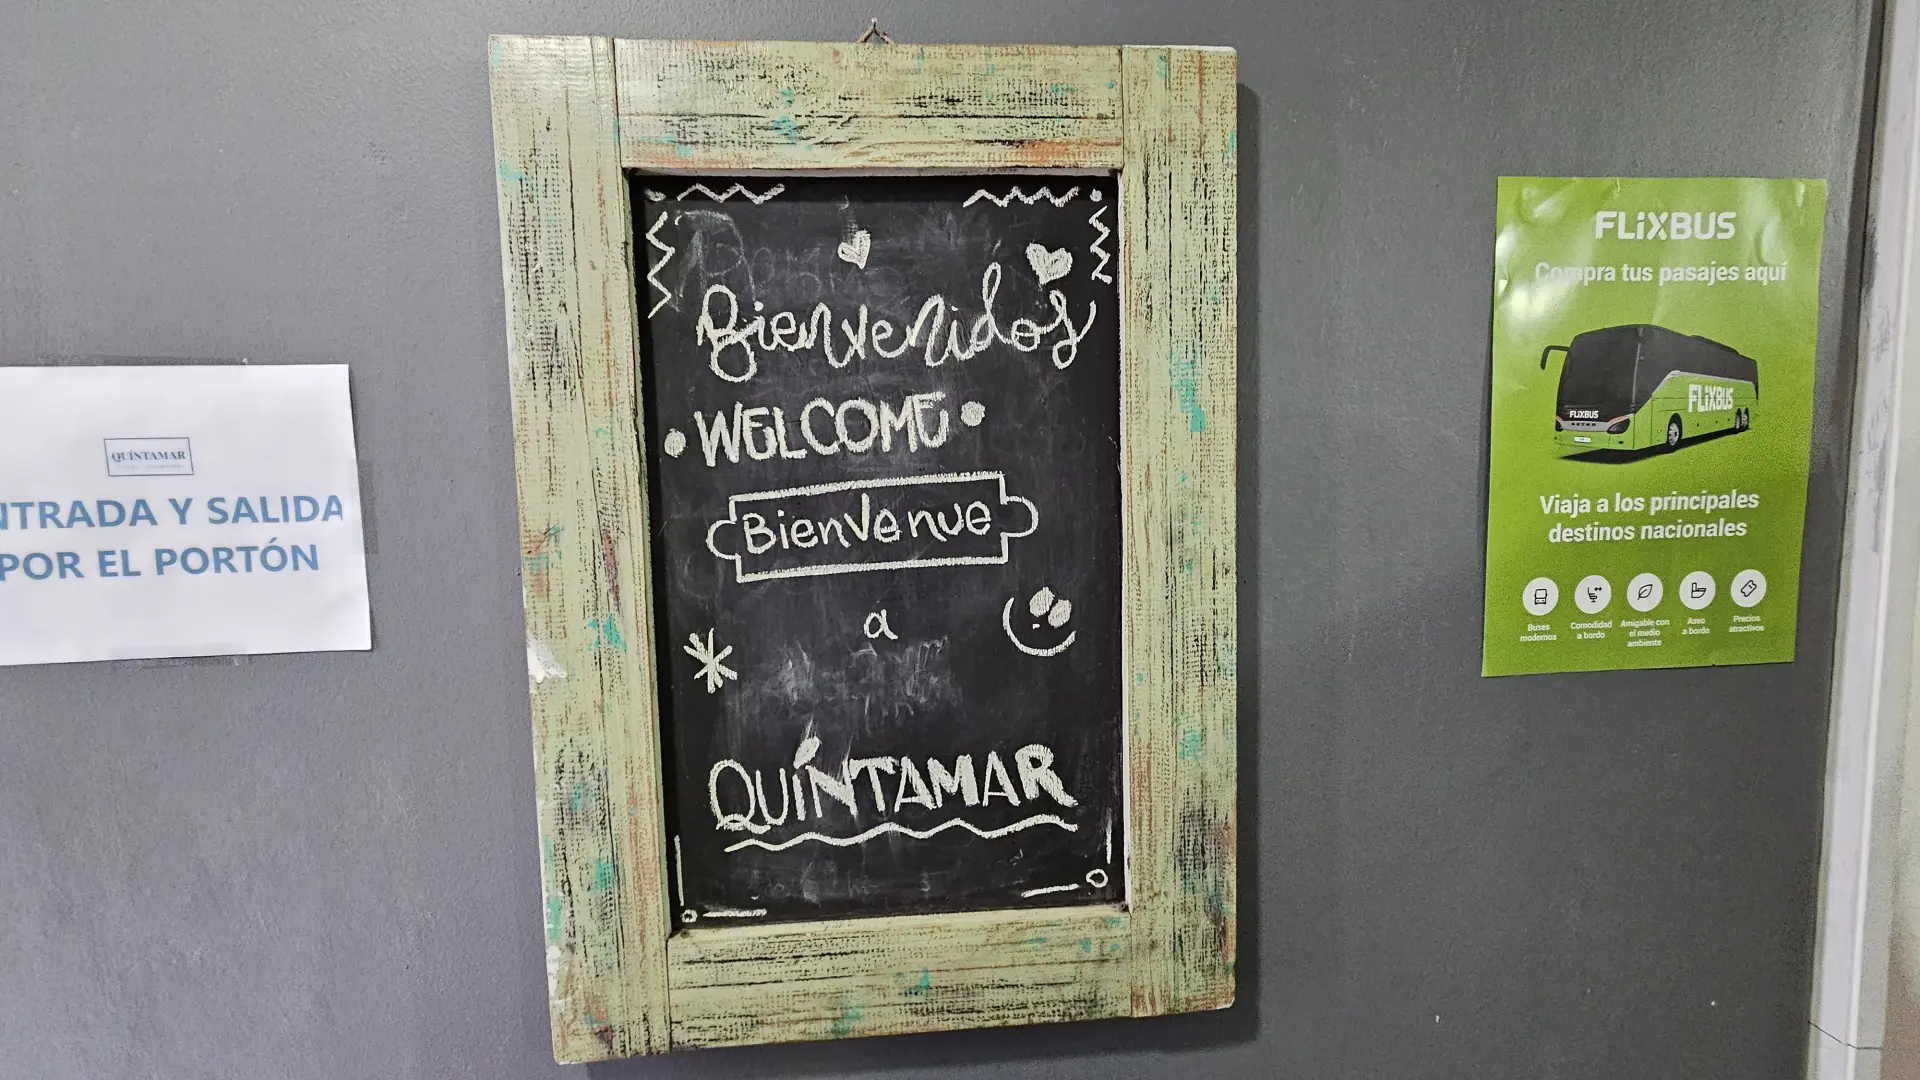 QUÍNTAMAR
NTRADA Y SALIDA
POR EL PORTÓN
Bienvenidos
WELCOME
Bienvenue
a
QUÍNTAMAR
FLiXBUS
Compra tus pasajes aquí
FLiXBUS
FLiXBUS
Viaja a los principales
destinos nacionales
Buses
modernos
Comodidad
a bordo
Amigable con
el medio
ambiente
Aseo
a bordo
Precios
atractivos